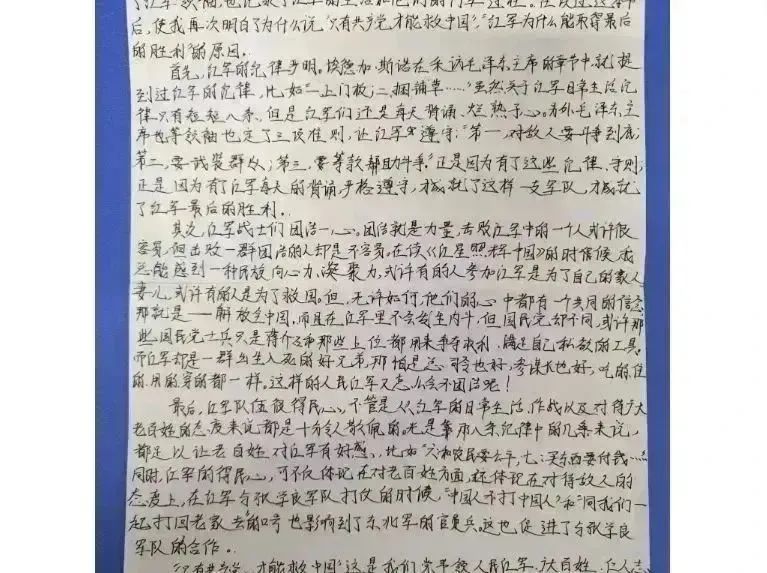 了红军铁袖,也记录了红军的生活和他们的
后,使我再次明白了为什么说"只有共产党才能救中国","红军为什么能取得最后
的胜利"的原因.
首先,红军的纪律严明。埃德加·斯诺在采访毛泽东主席的章节中就提
到过红军的纪律,比如"一上门板;二捆铺草……"虽然关于红军日常生活纪
律只有短短八条.但是红军们还是每天背诵、烂熟于心。另外毛泽东主
席也等铁袖也定了三项准则,让红军遵守:"第一,对敌人要斗争到底;
第二,要武装群众;第三,要筹款帮助斗争."正是因为有了这些纪律、守则;
正是因为有了红军每天的背诵、严格遵守,才成就了这样一支军队,才成就
了红军最后的胜利.
其次,红军战士们团结一心。团结就是力量,击败红军中的一个人或许很
容易,但击败一群团结的人却是不容易.在读《红星照耀中国》的时候,我
总能感到一种民族向心力、凝聚力,或许有的人参加红军是为了自己的家人
妻儿,或许有的人是为了救国.但,无论如何,他们的心中都有一个共同的信念
那就是——解放全中国,而且在红军里不会发生内斗,但国民党却不同,或许那
些国民党士兵只是蒋介石和那些上位都用来争夺权利、满足自己私欲的工具.
而红军却是一群出生入死的好兄弟,那怕是总司令也好,参谋长也好,吃的住
的、用的穿的都一样,这样的人民红军又怎么会不团结呢!
最后,红军队伍很得民心,不管是从红军的日常生活、作战以及对待广大
老百姓的态度来说都是十分令人敬佩的.光是拿那八条纪律中的几条来说,
都足以让老百姓对红军有好感,比如"六:和农民要公平,七:买东西要付钱……"
同时,红军的得民心,可不仅体现在对老百姓方面,还体现在对待敌人的
态度上,在红军与张学良军队打仗的时候,"中国人不打中国人"和"同我们一
起打回老家去"的口号也影响到了东北军的官员兵.这也促进了与张学良
军队的合作.
"只有共产党,才能救中国"这是我们